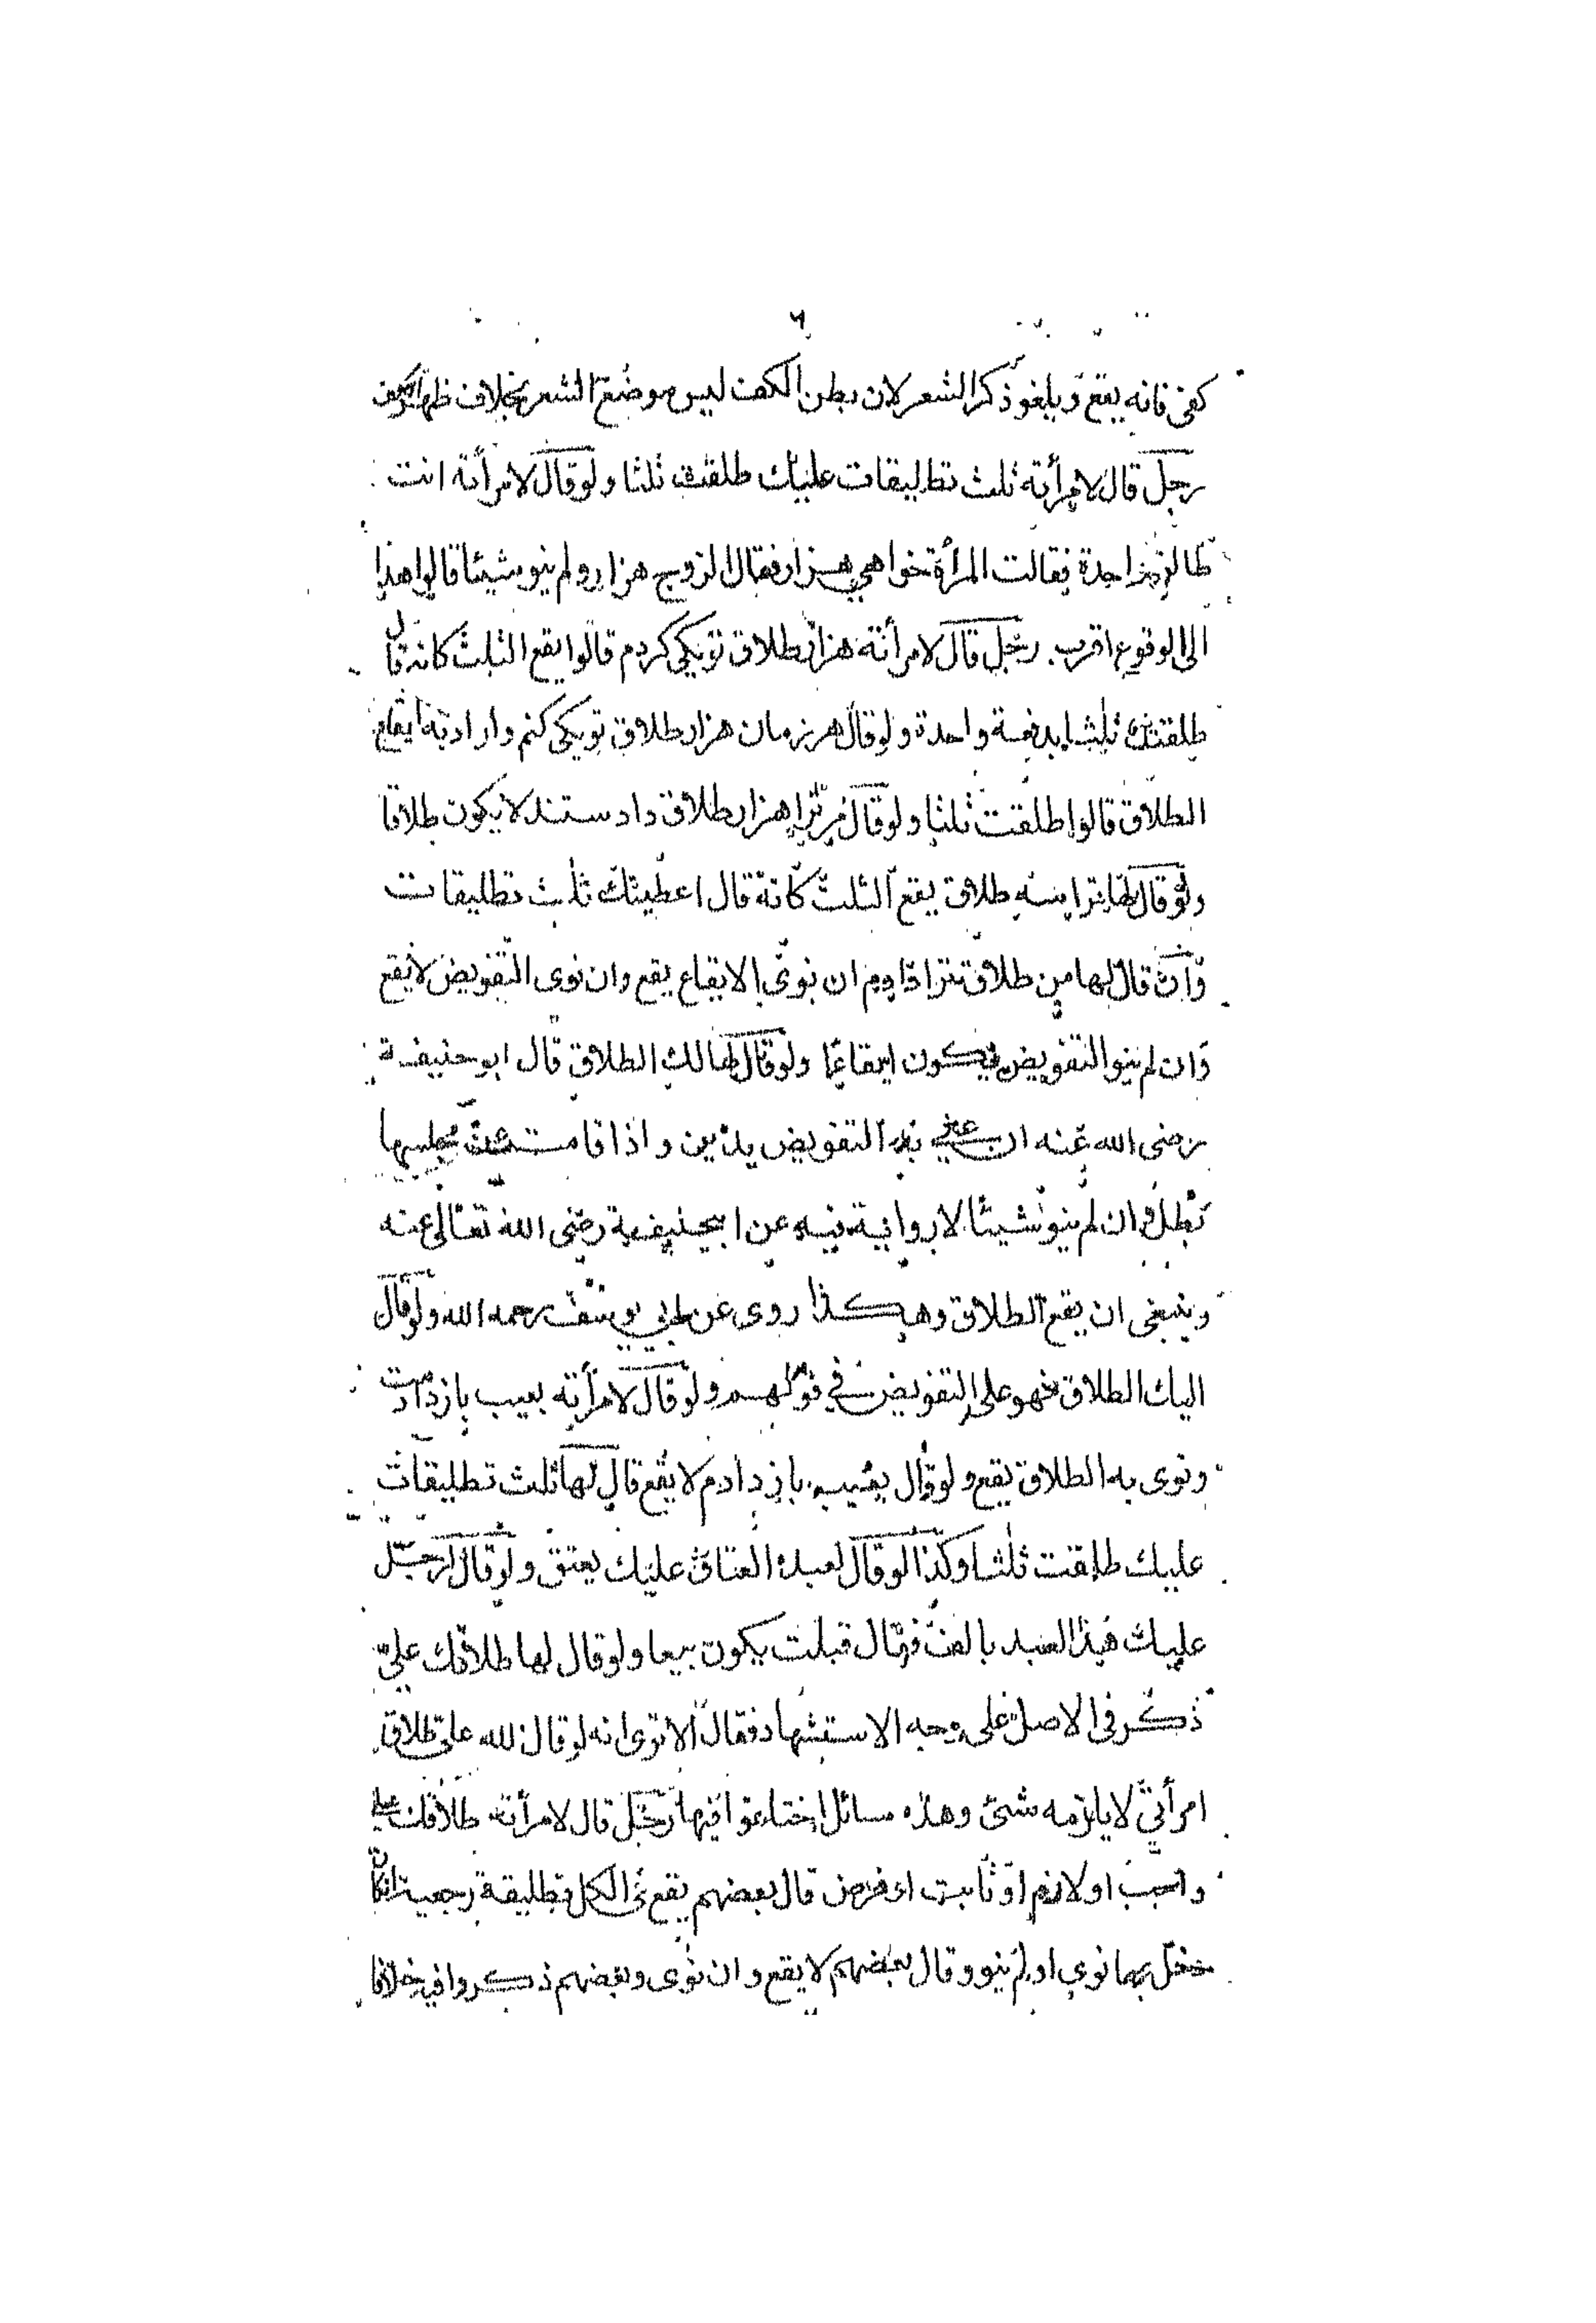 ٦
كفى فانه يقع ويلغو ذكر الشعر لان بطن الكف ليس موضع الشعر بخلاف ظهر الكف
رجل قال لامرأته ثلث تطليقات عليك طلقت ثلثا ولو قال لامرأته انت
طالق واحدة فقالت المرأة خواهى هزار فقال الزوج هزار ولم ينو شيئا قالوا هذا
الى الوقوع اقرب رجل قال لامرأته هزار طلاق تو يكى كردم قالوا يقع الثلث كانه قال
طلقتك ثلثا بدفعة واحدة ولو قال هر زمان هزار طلاق تو يكى كنم واراد به ايقاع
الطلاق قالوا طلقت ثلثا ولو قال مر ترا هزار طلاق دادستند لا يكون طلاقا
ولو قال لها ترا سه طلاق يقع الثلث كانه قال اعطيتك ثلث تطليقات
وان قال لها من طلاق ترا دادم ان نوى الايقاع يقع وان نوى التفويض لا يقع
وان لم ينو التفويض يكون ايقاعا ولو قال لها لك الطلاق قال ابو حنيفة
رضى الله عنه ان عنى به التفويض يدين واذا قامت عن مجلسها
بطل وان لم ينو شيئا لا رواية فيه عن ابيحنيفة رضى الله تعالى عنه
وينبغى ان يقع الطلاق وهكذا روى عن ابي يوسف رحمه الله ولو قال
اليك الطلاق فهو على التفويض في قولهم ولو قال لامرأته بعيب باز دادمت
ونوى به الطلاق يقع ولو قال بعيب باز دادم لا يقع قال لها ثلث تطليقات
عليك طلقت ثلثا وكذا لو قال لعبده العتاق عليك يعتق ولو قال لرجل
عليك هذا العبد بالف فقال قبلت يكون بيعا ولو قال لها طلاقك علي
ذكر في الاصل على وجه الاستشهاد فقال الا ترى انه لو قال لله على طلاق
امرأتي لا يلزمه شئ وهذه مسائل اختلفوا فيها رجل قال لامرأته طلاقك علي
واجب او لازم او ثابت او فرض قال بعضهم يقع في الكل تطليقة رجعية ان كان
دخل بها نوى او لم ينو وقال بعضهم لا يقع وان نوى وبعضهم ذكروا فيه خلافا